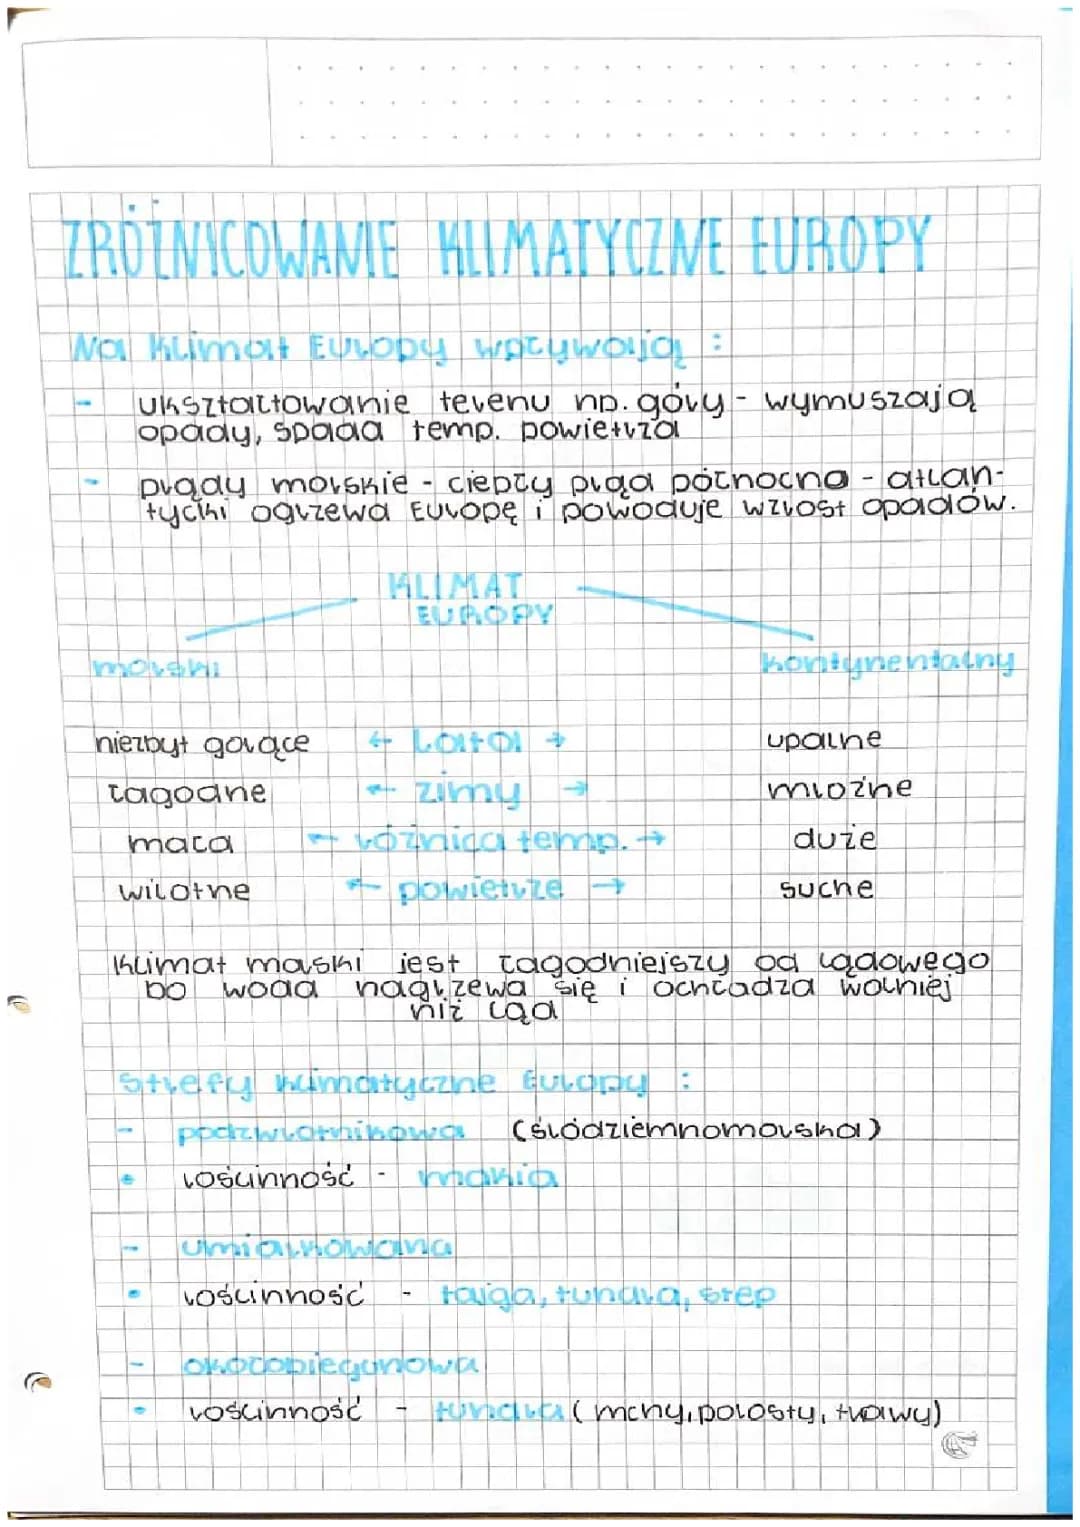 ZRÓŻNICOWANIE KLIMATYCZNE EUROPY
Na klimat Europy wpływają :
- ukształtowanie terenu np. góry - wymuszają
opady, spada temp. powietrza
- prądy morskie - ciepły prąd północno - atlan-
tycki ogrzewa Europę i powoduje wzrost opadów.
KLIMAT
EUROPY
morski kontynentalny
niezbyt gorące ← Lata → upalne
łagodne ← zimy → mroźne
mała ← różnica temp. → duże
wilotne ← powietrze → suche
Klimat morski jest łagodniejszy od lądowego
bo woda nagrzewa się i ochładza wolniej
niż ląd
Strefy klimatyczne Europy :
- podzwrotnikowa (śródziemnomorska)
• rościnność - makia
- umiarkowana
• rościnność - tajga, tundra, step
- okołobiegunowa
• rościnność - tundra (mchy, porosty, trawy)